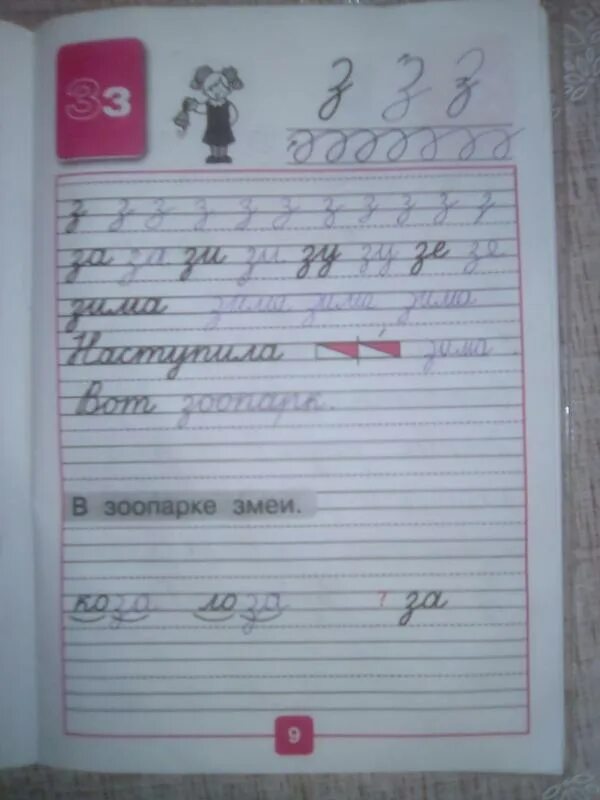 Зз
з з з
з з з з з з з з з з
за за зи зи зу зу зе зе
зима зима зима зима
Наступила зима.
Вот зоопарк.
В зоопарке змеи.
коза лоза ? за
9